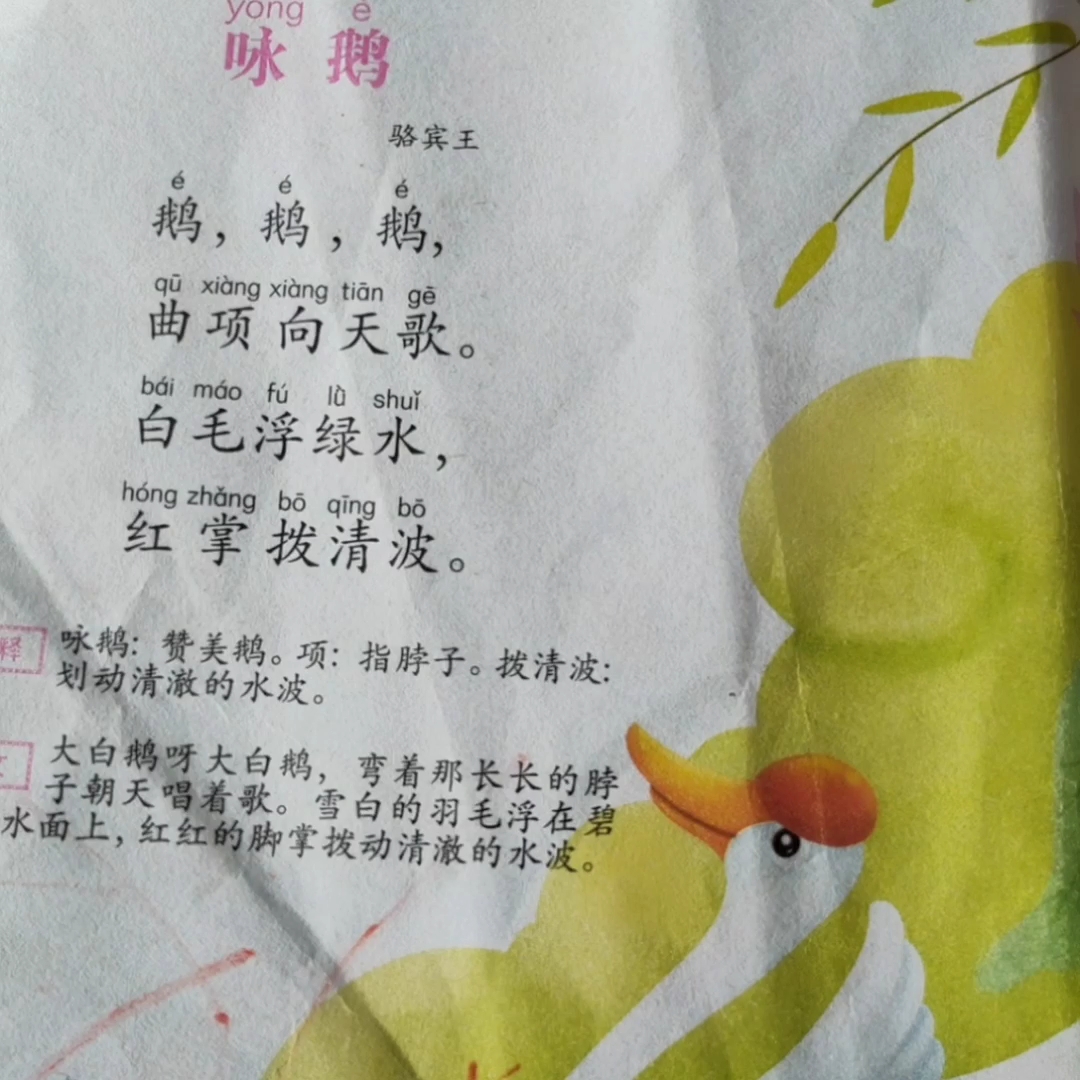 yǒng é
咏鹅
骆宾王
é é é
鹅，鹅，鹅，
qū xiàng xiàng tiān gē
曲项向天歌。
bái máo fú lǜ shuǐ
白毛浮绿水，
hóng zhǎng bō qīng bō
红掌拨清波。
释 咏鹅：赞美鹅。项：指脖子。拨清波：
划动清澈的水波。
大白鹅呀大白鹅，弯着那长长的脖
子朝天唱着歌。雪白的羽毛浮在碧
水面上，红红的脚掌拨动清澈的水波。